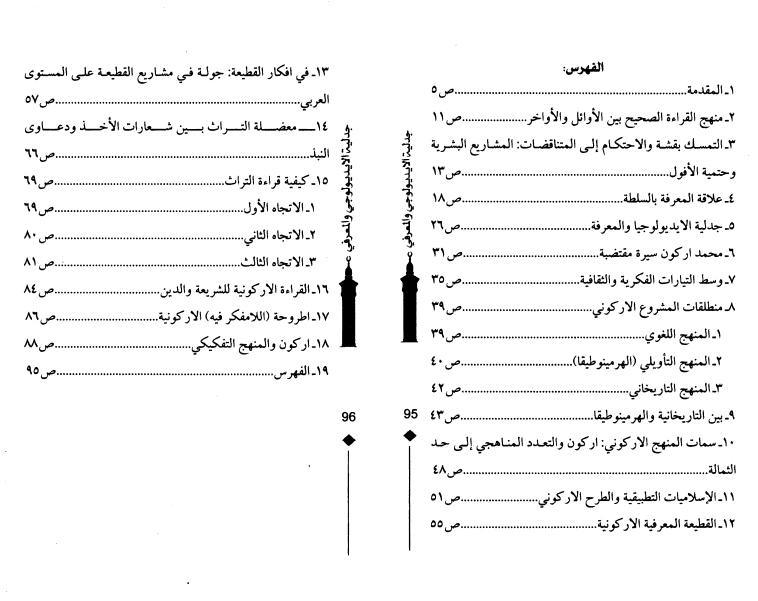 الفهرس:
١ـ المقدمة............ص٥
٢ـ منهج القراءة الصحيح بين الأوائل والأواخر............ص١١
٣ـ التمسك بقشة والاحتكام إلى المتناقضات: المشاريع البشرية
وحتمية الأفول............ص١٣
٤ـ علاقة المعرفة بالسلطة............ص١٨
٥ـ جدلية الايديولوجيا والمعرفة............ص٢٦
٦ـ محمد اركون سيرة مقتضبة............ص٣١
٧ـ وسط التيارات الفكرية والثقافية............ص٣٥
٨ـ منطلقات المشروع الاركوني............ص٣٩
١ـ المنهج اللغوي............ص٣٩
٢ـ المنهج التأويلي (الهرمينوطيقا)............ص٤٠
٣ـ المنهج التاريخاني............ص٤٢
٩ـ بين التاريخانية والهرمينوطيقا............ص٤٣
١٠ـ سمات المنهج الاركوني: اركون والتعدد المناهجي إلى حد
الثمالة............ص٤٨
١١ـ الإسلاميات التطبيقية والطرح الاركوني............ص٥١
١٢ـ القطيعة المعرفية الاركونية............ص٥٥
جدلية الايديولوجي والمعرفي
95
١٣ـ في افكار القطيعة: جولة في مشاريع القطيعة على المستوى
العربي............ص٥٧
١٤ـ معضلة التراث بين شعارات الأخذ ودعاوى
النبذ............ص٦٦
١٥ـ كيفية قراءة التراث............ص٦٩
١ـ الاتجاه الأول............ص٦٩
٢ـ الاتجاه الثاني............ص٨٠
٣ـ الاتجاه الثالث............ص٨١
١٦ـ القراءة الاركونية للشريعة والدين............ص٨٤
١٧ـ اطروحة (اللامفكر فيه) الاركونية............ص٨٦
١٨ـ اركون والمنهج التفكيكي............ص٨٨
١٩ـ الفهرس............ص٩٥
جدلية الايديولوجي والمعرفي
96